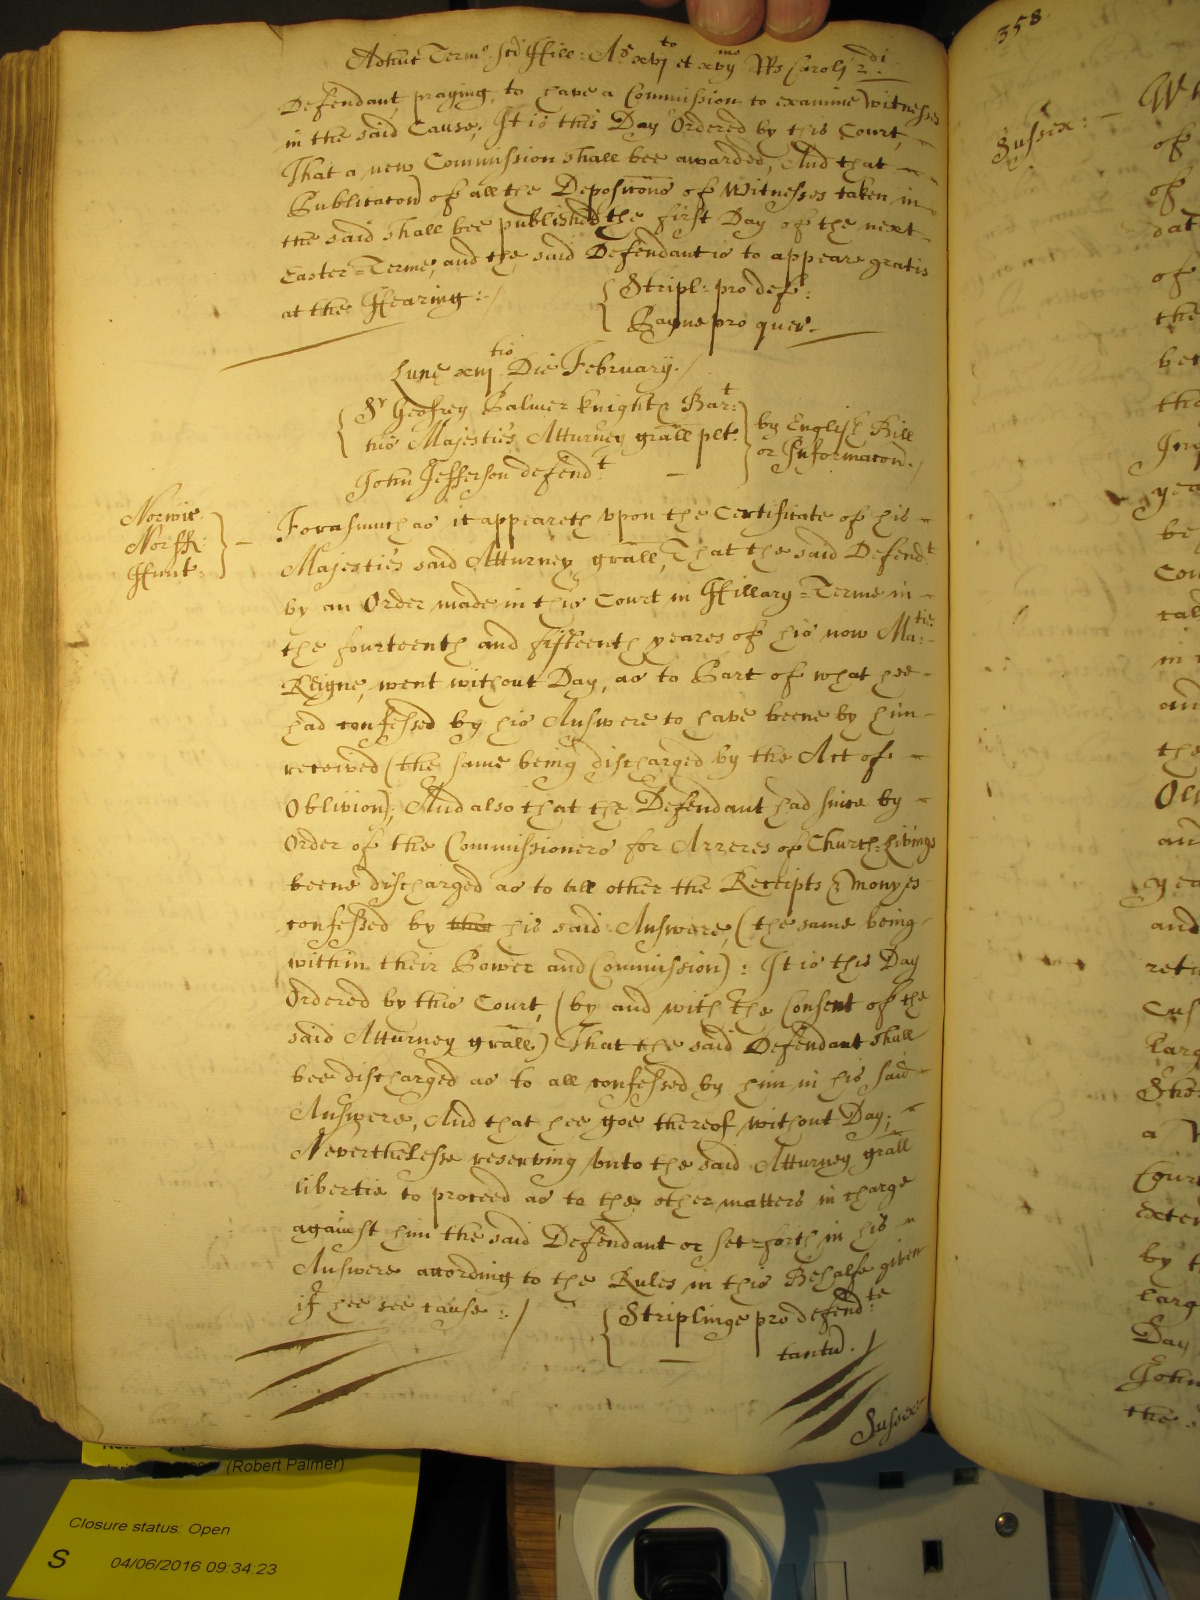 Adhuc Term.º Scĩ Hill: Aº xvj.to et xvij.mo Rs Caroli 2.di:
Defendant, praying, to have a Commission to examine Witnesses
in the said Cause, It is this Day Ordered by this Court,
That a new Commission shall bee awarded, And that
Publicacon of all the Deposicons of Witnesses taken in
the said shall bee published the first Day of the next
Easter=Terme, and the said Defendant is to appeare gratis
at the Hearing:
Stripl: pro def:
Payne pro quer.
Lune xiij.tio Die February.
Sr Geofrey Palmer Knight & Bar.t
his Majesties Atturney grãll plt.
by English Bill
or Informacon.
John Jefferson defend.t
Norwic.
Norff:
Hunt:
Forasmuch as it appeareth vpon the Certificate of his
Majesties said Atturney grãll, That the said Defend.t
by an Order made in this Court in Hillary=Terme in
the fourteenth and fifteenth yeares of his now Ma:tie
Reigne, went without Day, as to Part of what hee
had confessed by his Answere to have beene by him
received (the same being discharged by the Act of
Oblivion); And also that the Defendant had since by
Order of the Commissioners for Arreres of Church=Livings
beene discharged as to all other the Receipts & monyes
confessed by ther his said Answere, (the same being
within their Power and Commission): It is this Day
Ordered by this Court, (by and with the Consent of the
said Atturney grãll) That the said Defendant shall
bee discharged as to all confessed by him in his said
Answere, And that hee goe thereof without Day;
Neverthelesse reserving vnto the said Atturney grãll
libertie to proceed as to the other matters in charge
against him the said Defendant or set=forth in his
Answere according to the Rules in this Behalfe given
if hee see cause:
Striplinge pro defend:te
tantũ.
Sussex:
358
Sussex:
of
of
dat
of
the
be
Cou
in
and
the
and
yea
and
retu
larg
a
Court
exten
by t
larg
Day
John
the s
(Robert Palmer)
Closure status: Open
S 04/06/2016 09:34:23